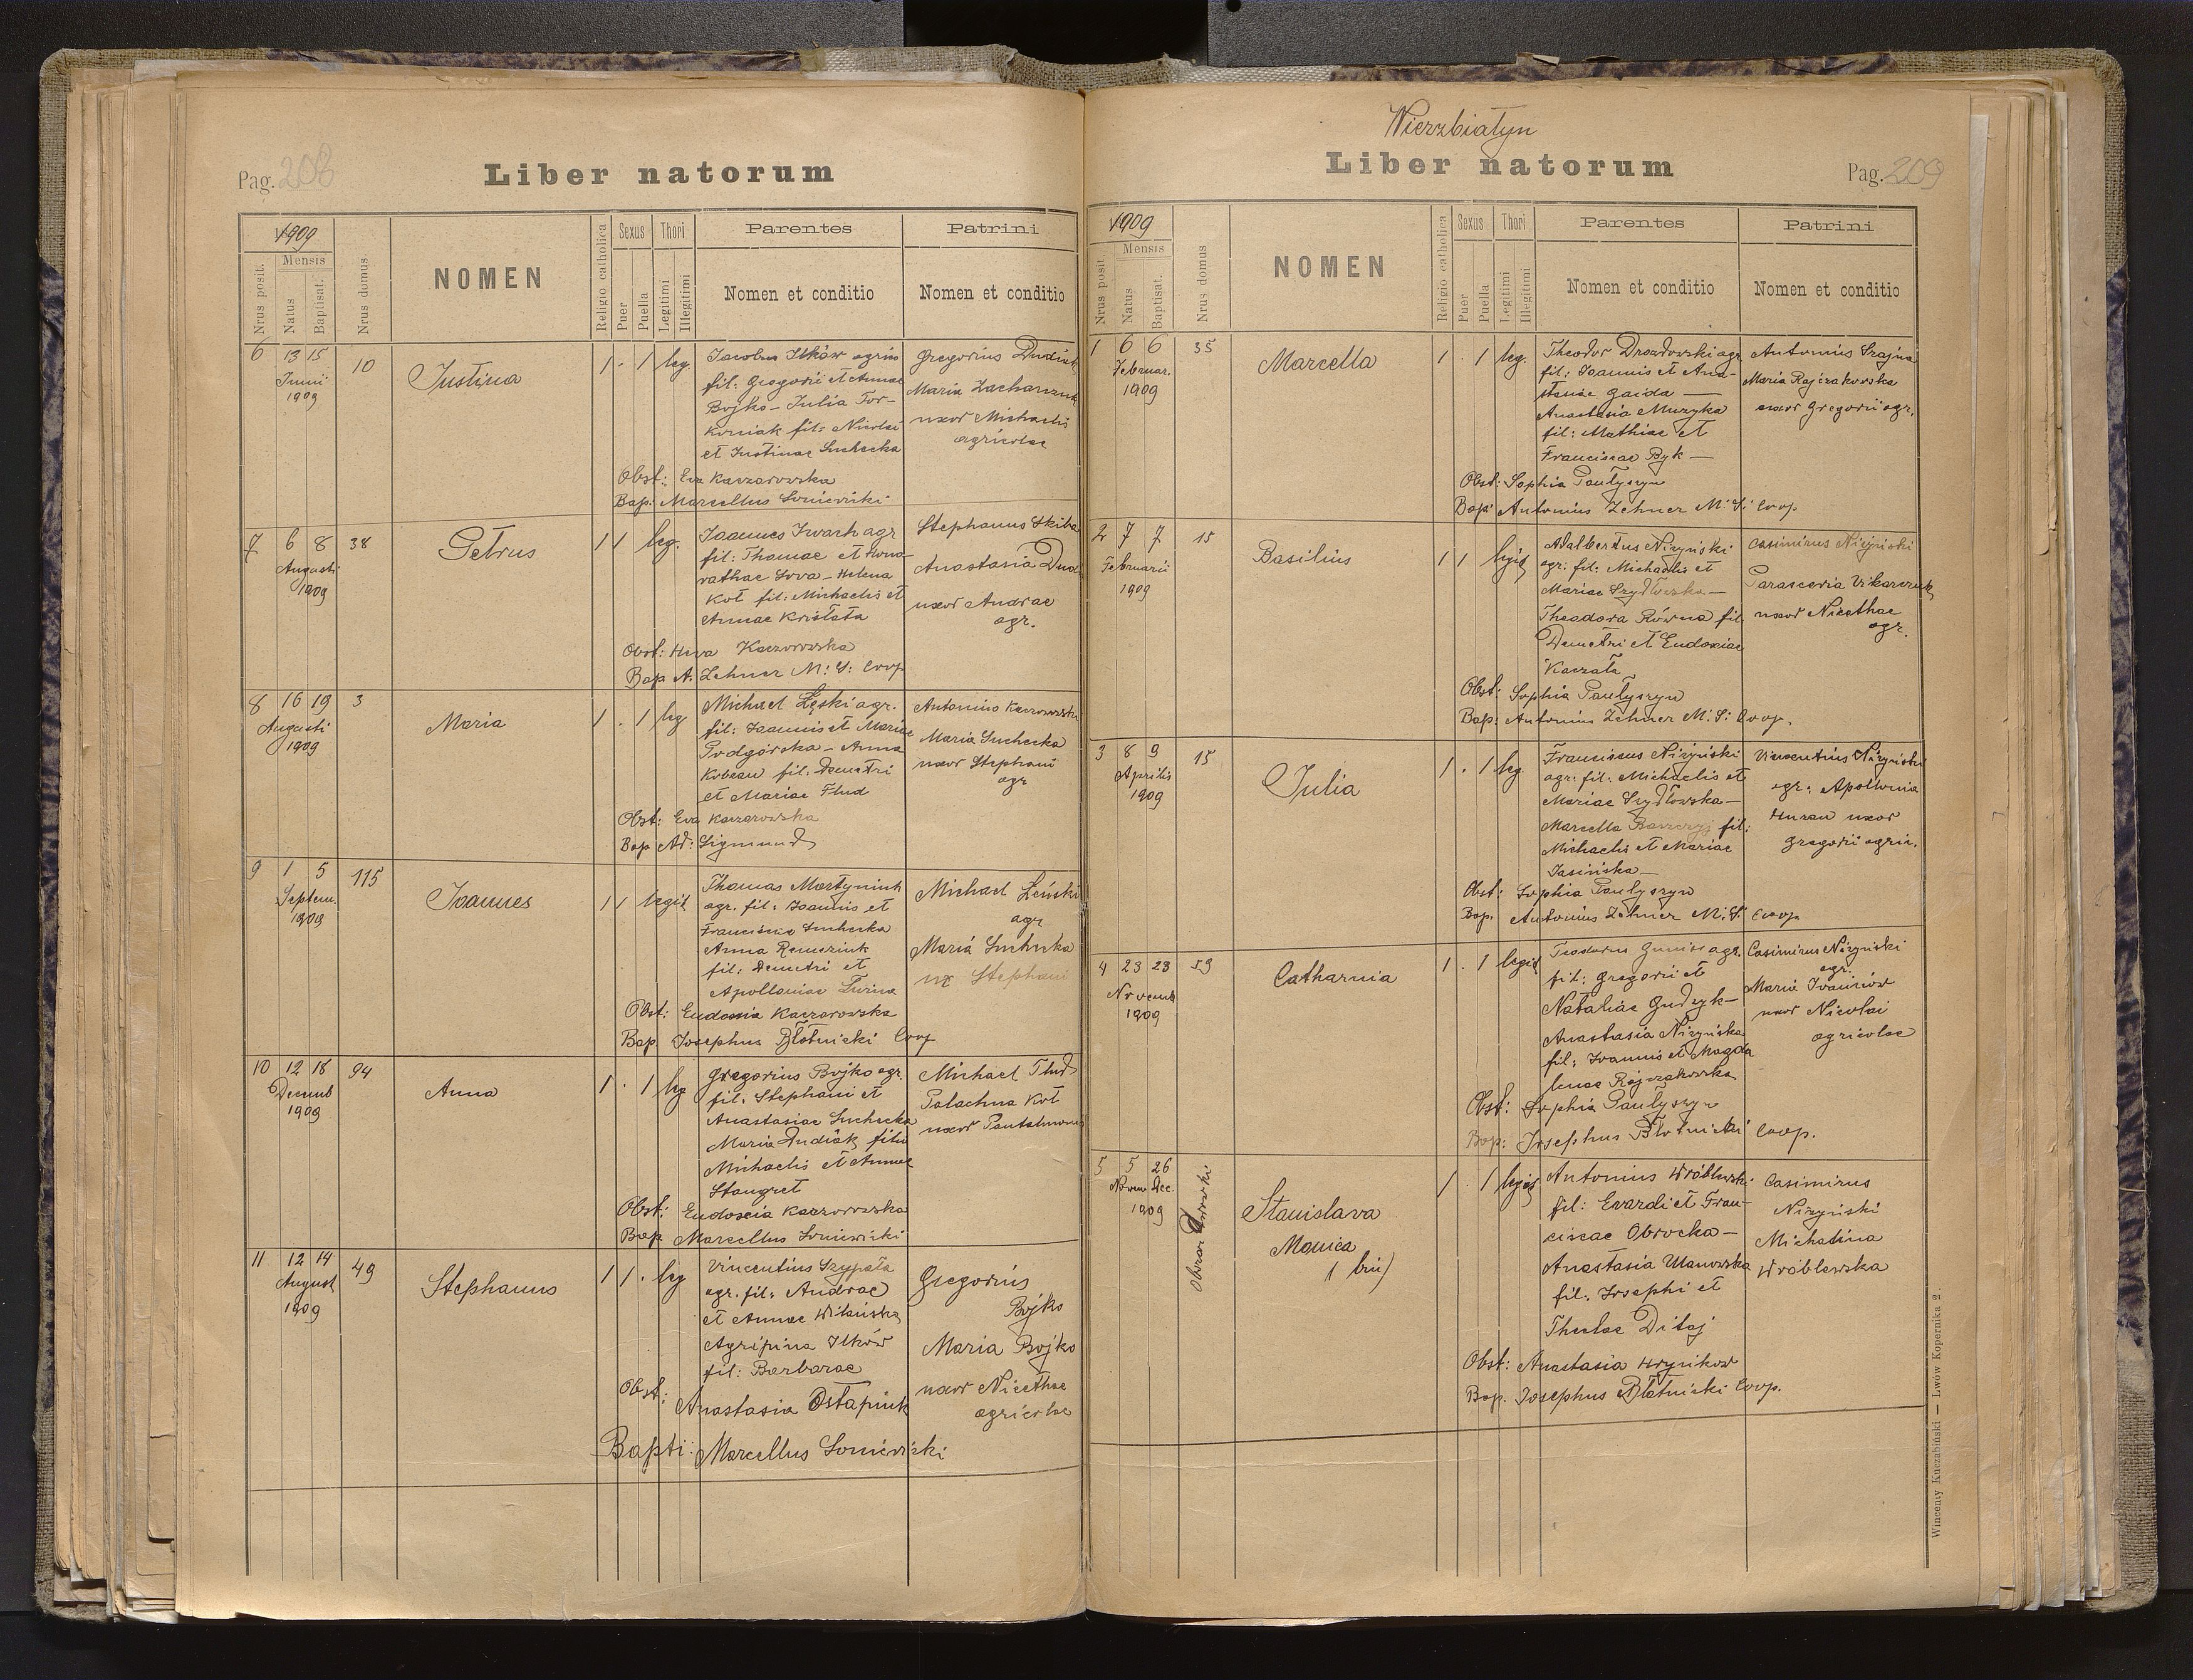 Pag. 208
Liber natorum
1909
Mensis
Nrus posit.
Natus
Baptisat.
Nrus domus
NOMEN
Religio catholica
Sexus
Puer
Puella
Thori
Legitimi
Illegitimi
Parentes
Nomen et conditio
Patrini
Nomen et conditio
6 13 15 10
Junii
1909
Justina
1 . 1 leg.
Jacobus Ilków agric
fil: Gregorii et Annae
Bojko - Julia Tor-
koniak fil: Nicolai
et Justinae Suchecka
Gregorius Dudiak
Maria Zacharczuk
uxor Michaelis
agricolae
Obst: Eva Kaczorowska
Bap: Marcellus Soniewicki
7 6 8 38
Augusti
1909
Petrus
1 1 leg.
Joannes Iwach agr
fil: Thomae et Horo-
rathae Sova - Helena
Kot fil: Michaelis et
Annae Kristata
Stephanus Skiba
Anastasia Dud
uxor Andrae
agr.
Obst: Kaczorowska
Bap A. Zehner M: S: Coop
8 16 19 3
Augusti
1909
Maria
1 . 1 leg
Michael Łęski agr.
fil: Joannis et Mariae
Podgórska - Anna
fil. Demetri
et Mariae Flud
Antonius Kaczorowski
Maria Suchecka
uxor Stephani
agr
Obst: Eva Kaczorowska
Bap Ad: Sigmund
9 1 5 115
Septem.
1909
Joannes
1 1 legit
Thomas Martyniuk
agr. fil: Joannis et
Suchecka
Anna
fil: Demetri et
Apolloniae
Michael
agr
Maria Suchecka
ux Stephani
Obst: Eudoxia Kaczorowska
Bap Josephus Błotnicki Coop
10 12 18 94
Decemb
1909
Anna
1 . 1 leg
Gregorius Bojko agr.
fil. Stephani et
Anastasiae Suchecka
Maria Dudiak filia
Michaelis et Annae
Stangret
Michael Flud
Palachna Kot
uxor Pantelmonis
Obst: Eudoxia Kaczorowska
Bap Marcellus Soniewicki
11 12 14 49
August
1909
Stephanus
1 1 . leg
Vincentius Szypała
agr. fil: Andrae
et Annae
Agripina Ilków
fil: Barbarae
Gregorius
Bojko
Maria Bojko
uxor Nicethae
agricolae
Obst: Anastasia Ostapiuk
Bapti: Marcellus Soniewicki
Wierzbiatyn
Liber natorum
Pag. 209
1909
Mensis
Nrus posit.
Natus
Baptisat.
Nrus domus
NOMEN
Religio catholica
Sexus
Puer
Puella
Thori
Legitimi
Illegitimi
Parentes
Nomen et conditio
Patrini
Nomen et conditio
1 6 6 35
Februar.
1909
Marcella
1 . 1 leg.
Theodor Drozdowski agr
fil: Joannis et Ana-
stasiae Gaida —
Anastasia Muzyka
fil: Mathiae et
Franciscae Byk —
Antonius Szajna
Maria Rajczakowska
uxor Gregorii agr.
Obst: Sophia Pautyszyn
Bap: Antonius Zehner M: S: Coop
2 7 7 15
Februarii
1909
Basilius
1 1 legit
Adalbertus Niżyński
agr: fil: Michaelis et
Mariae Szydłowska —
Theodora Równa fil
Demetri et Eudoxiae
Kaczała
Casimirus Niżyński
Parascevia Vikarczuk
uxor Nicethae
agr.
Obst: Sophia Pautyszyn
Bap: Antonius Zehner M. S: Coop.
3 8 9 15
Aprilis
1909
Julia
1 . 1 leg.
Franciscus Niżyński
agr: fil: Michaelis et
Mariae Szydłowska —
Marcella fil:
Michaelis et Mariae
Jasińska —
Vincentius Niżyński
agr: Apollonia
uxor
Gregorii agric.
Obst: Sophia Pautyszyn
Bap. Antonius Zehner M. S. Coop
4 23 23 59
Novemb
1909
Catharina
1 . 1 legit
agr.
fil: Gregorii et
Nataliae Gudzyk —
Anastasia Niżyńska
fil: Joannis et Magda
lenae Rajczakowska
Casimirus Niżyński
agr.
Maria Iwaniów
uxor Nicolai
agricolae
Obst: Sophia Pautyszyn
Bap: Josephus Błotnicki Coop.
5 5 26
Novem Dec.
1909
Stanislava
Monica
1 . 1 legit
Antonius Wróblewski
fil: Evardi et Fran-
ciscae Obrocka —
Anastasia Ulanowska
fil: Josephi et
Theclae Ditaj
Casimirus
Niżyński
Michalina
Wróblewska
Obst: Anastasia Hrynikow
Bap. Josephus Błotnicki Coop.
Wincenty Kuczabiński — Lwów Kopernika 2.